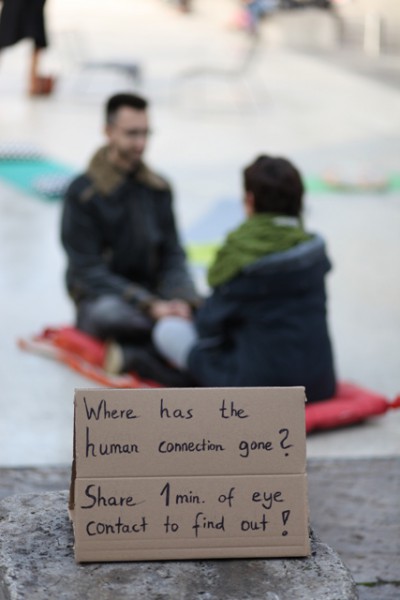 Where has the
human connection gone?
Share 1 min. of eye
contact to find out!